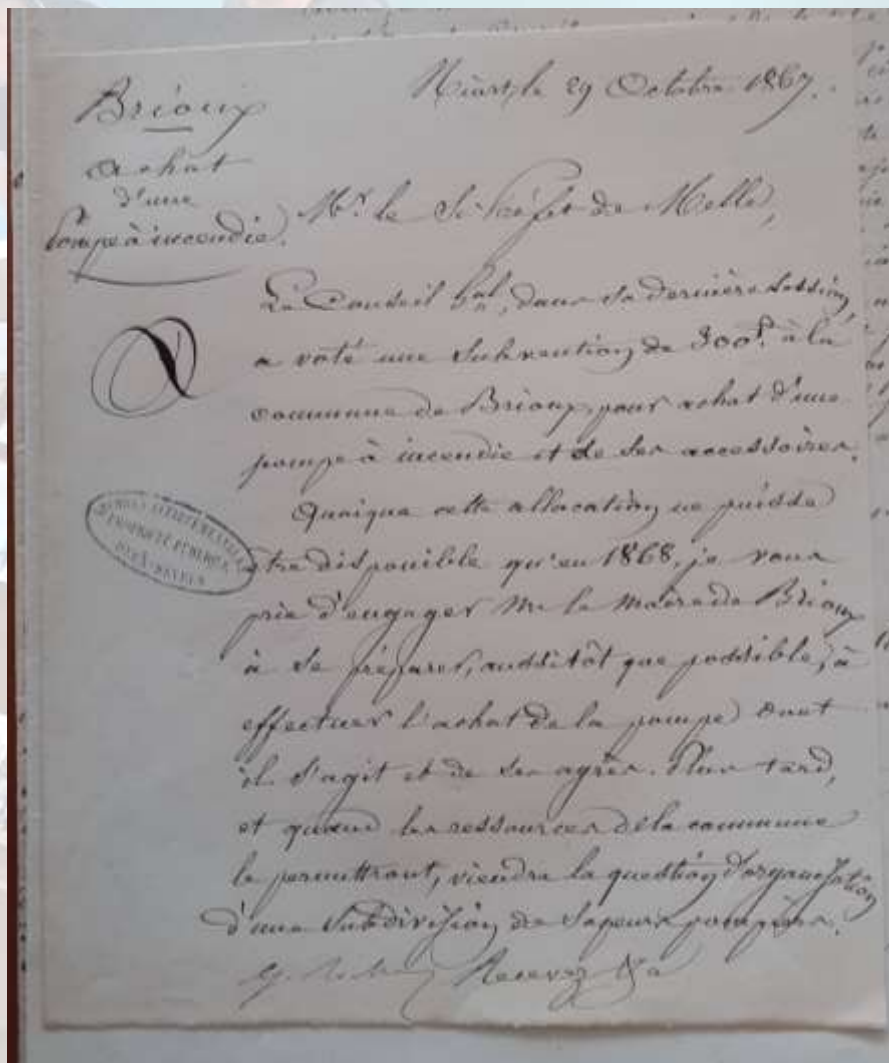 Brioux
achat
d'une
Pompe à incendie.
Niort, le 29 Octobre 1867.
Mr. le S. Préfet de Melle,
Le Conseil Gal, dans sa dernière session,
a voté une Subvention de 300f. à la
commune de Brioux, pour achat d'une
pompe à incendie et de ses accessoires.
Quoique cette allocation ne puisse
être disponible qu'en 1868, je vous
prie d'engager Mr le Maire de Brioux
à se préparer, aussitôt que possible, à
effectuer l'achat de la pompe dont
il s'agit et de ses agrès. Plus tard,
et quand les ressources de la commune
le permettront, viendra la question d'organisation
d'une Subdivision de Sapeurs pompiers.
Recevez &a
ARCHIVES DÉPARTEMENTALES
PROPRIÉTÉ PUBLIQUE
DEUX-SEVRES